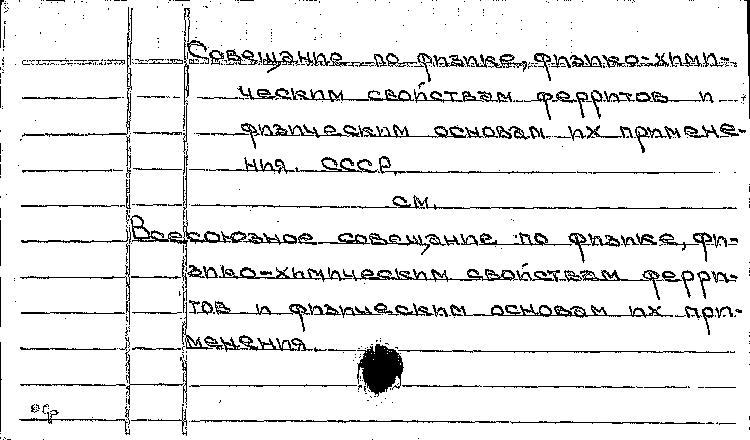 Совещание по физике, физико-хими-
ческим свойствам ферритов и
физическим основам их примене-
ния. СССР.
см.
Всесоюзное совещание по физике, фи-
зико-химическим свойствам ферри-
тов и физическим основам их при-
менения.